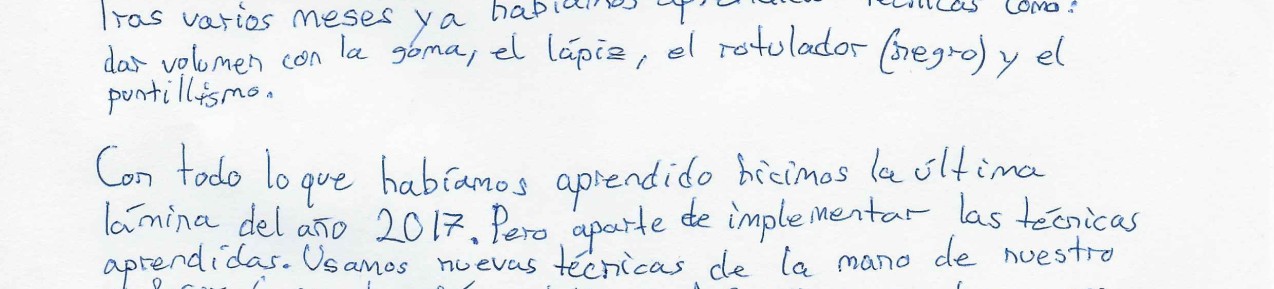 Tras varios meses ya habíamos aprendido técnicas como:
dar volumen con la goma, el lápiz, el rotulador (negro) y el
puntillismo.
Con todo lo que habíamos aprendido hicimos la última
lámina del año 2017. Pero aparte de implementar las técnicas
aprendidas. Usamos nuevas técnicas de la mano de nuestro